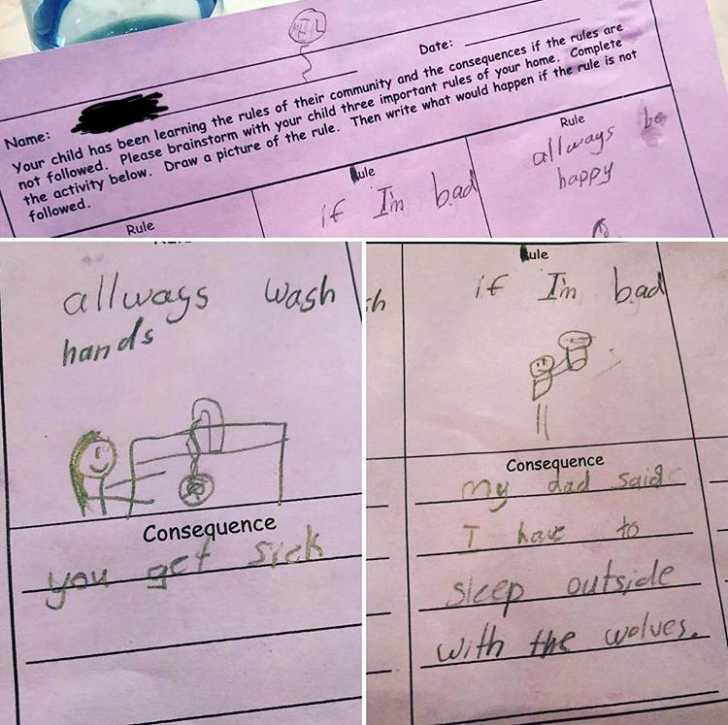 Date:
Name:
Your child has been learning the rules of their community and the consequences if the rules are
not followed. Please brainstorm with your child three important rules of your home. Complete
the activity below. Draw a picture of the rule. Then write what would happen if the rule is not
followed.
Rule
Rule
if Im bad
Rule
allways be
happy
allways wash
hands
Consequence
you get sick
Rule
if Im bad
Consequence
my dad said
I have to
sleep outside
with the wolves.